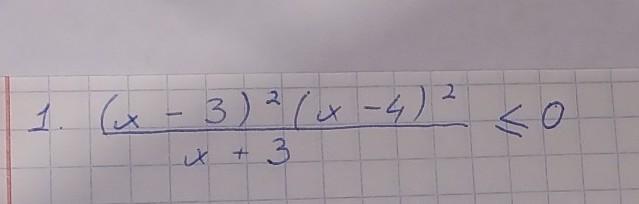 1. (x - 3)² (x - 4)² / x + 3 ≤ 0